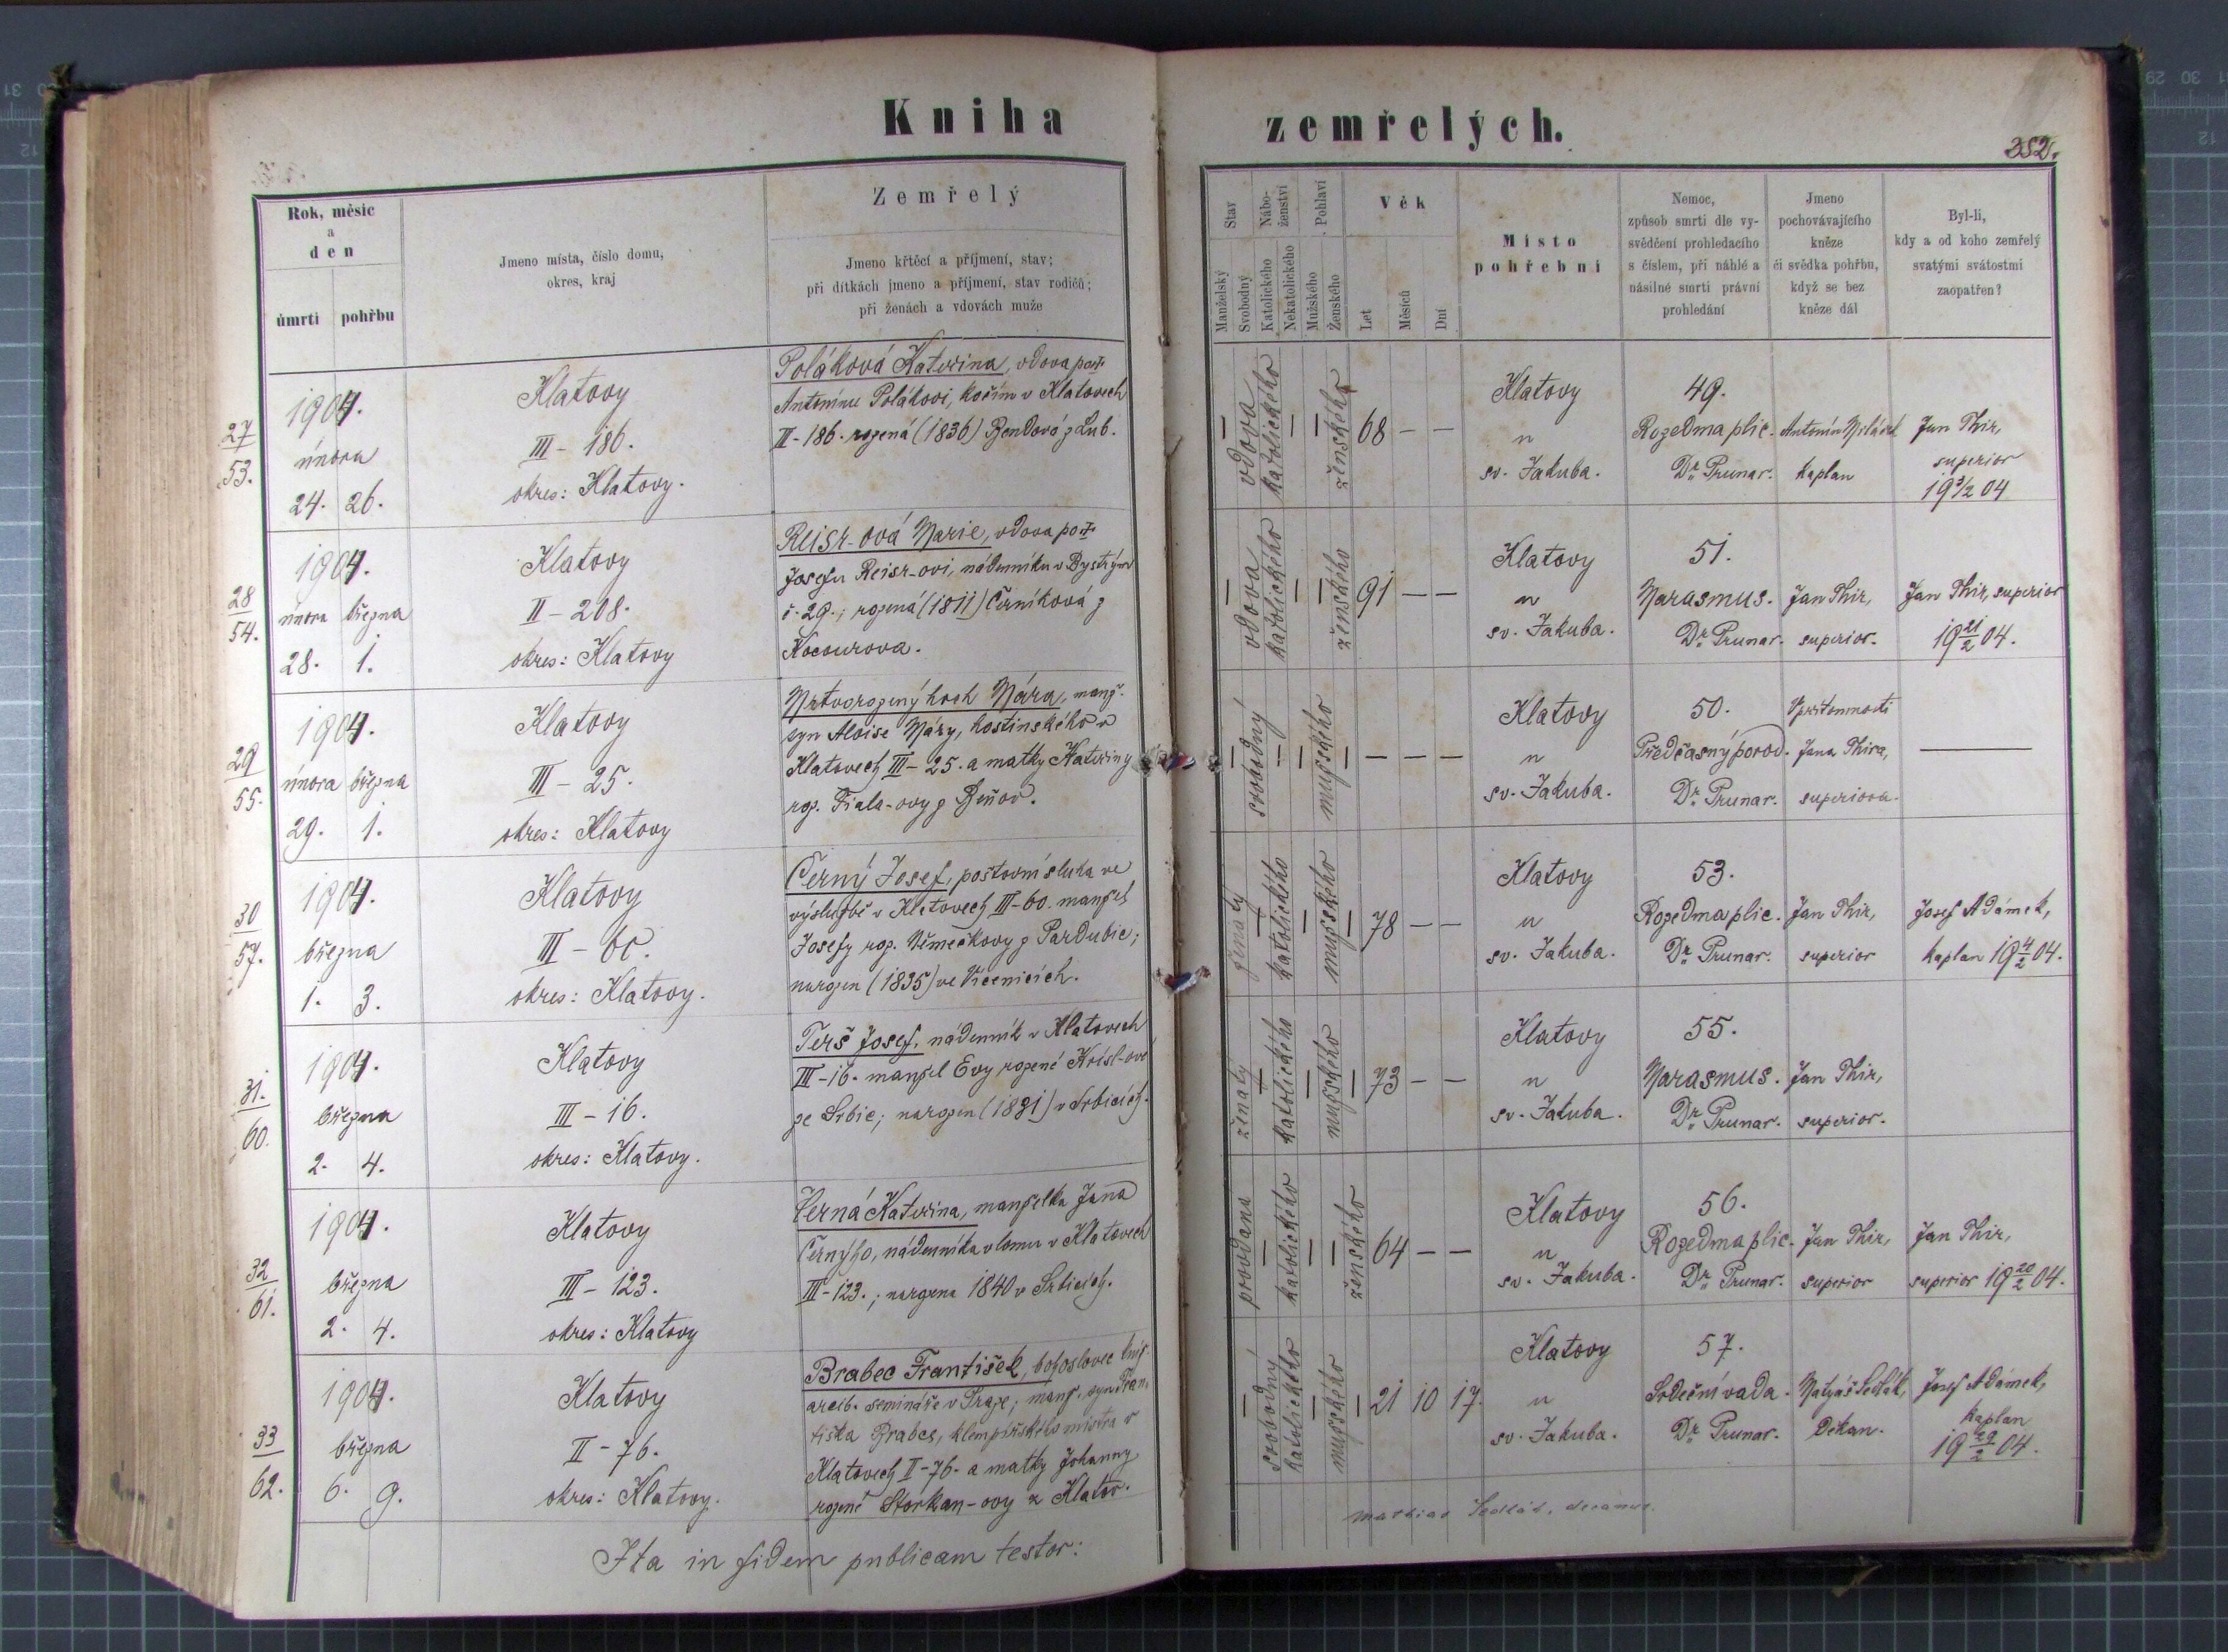 Kniha zemřelých.
352.
Rok, měsíc
a
den
úmrtí pohřbu
Jmeno místa, číslo domu,
okres, kraj
Zemřelý
Jmeno křtěcí a příjmení, stav;
při dítkách jmeno a příjmení, stav rodičů;
při ženách a vdovách muže
Stav
Manželský
Svobodný
Nábo-
ženství
Katolického
Nekatolického
Pohlaví
Mužského
Ženského
Věk
Let
Měsíců
Dní
Místo
pohřební
Nemoc,
způsob smrti dle vy-
svědčení prohledacího
s číslem, při náhlé a
násilné smrti právní
prohledání
Jmeno
pochovávajícího
kněze
či svědka pohřbu,
když se bez
kněze dál
Byl-li,
kdy a od koho zemřelý
svatými svátostmi
zaopatřen?
27
53.
1904.
února
24. 26.
Klatovy
III – 186.
okres: Klatovy.
Poláková Kateřina, vdova po
Antonínu Polákovi, kočím v Klatovech
III - 186. rozená (1836) Bendová z Lub.
vdova
katolického
ženského
68 – –
Klatovy
u
sv. Jakuba.
49.
Rozedma plic.
Dr. Prunar.
Antonín
kaplan
Jan Thir,
superior
19 3/2 04
28
54.
1904.
února března
28. 1.
Klatovy
II – 208.
okres: Klatovy
Reisr-ová Marie, vdova po
Josefu Reisr-ovi, nádenníku v Bystrým
č. 29.; rozená (1811) Černíková z
Kocourova.
vdova
katolického
ženského
91 – –
Klatovy
u
sv. Jakuba.
51.
Marasmus.
Dr. Prunar.
Jan Thir,
superior.
Jan Thir, superior
19 21/2 04.
29
55.
1904.
února března
29. 1.
Klatovy
III – 25.
okres: Klatovy
Mrtvorozený hoch Mára, manž.
syn Aloise Máry, hostinského v
Klatovech III – 25. a matky Kateřiny
roz. Fiala-ovy z Beňov.
svobodný
mužského
– – –
Klatovy
u
sv. Jakuba.
50.
Předčasný porod.
Dr. Prunar.
V přítomnosti
Jana Thira,
superiora.
30
57.
1904.
března
1. 3.
Klatovy
III – 60.
okres: Klatovy.
Černý Josef, poštovní sluha ve
výslužbě v Klatovech III-60. manžel
Josefy roz. Němečkovy z Pardubic;
narozen (1835) ve Vícenicích.
ženatý
katolického
mužského
78 – –
Klatovy
u
sv. Jakuba.
53.
Rozedma plic.
Dr. Prunar.
Jan Thir,
superior
Josef Adámek,
kaplan 19 4/2 04.
31.
60.
1904.
března
2. 4.
Klatovy
III – 16.
okres: Klatovy.
Terš Josef, nádenník v Klatovech
III-16. manžel Evy rozené Krisl-ové
ze Srbic; narozen (1831) v Srbicích.
ženatý
katolického
mužského
73 – –
Klatovy
u
sv. Jakuba.
55.
Marasmus.
Dr. Prunar.
Jan Thir,
superior.
32
61.
1904.
března
2. 4.
Klatovy
III – 123.
okres: Klatovy
Černá Kateřina, manželka Jana
Černýho, nádenníka v lomu v Klatovech
III-123.; narozena 1840 v Srbicích.
provdaná
katolického
ženského
64 – –
Klatovy
u
sv. Jakuba.
56.
Rozedma plic.
Dr. Prunar.
Jan Thir,
superior
Jan Thir,
superior 19 20/2 04.
33
62.
1904.
března
6. 9.
Klatovy
II – 76.
okres: Klatovy.
Brabec František, bohoslovec kníž.
arcib. semináře v Praze; manž. syn Fran-
tiška Brabce, klempířského mistra v
Klatovech II-76. a matky Johanny
rozené Storkan-ovy z Klatov.
svobodný
katolického
mužského
21 10 17.
Klatovy
u
sv. Jakuba.
57.
Srdeční vada.
Dr. Prunar.
Matyáš Sedlák,
děkan.
Josef Adámek,
kaplan
19 29/2 04.
Ita in fidem publicam testor:
Mathias Sedlák, decanus.